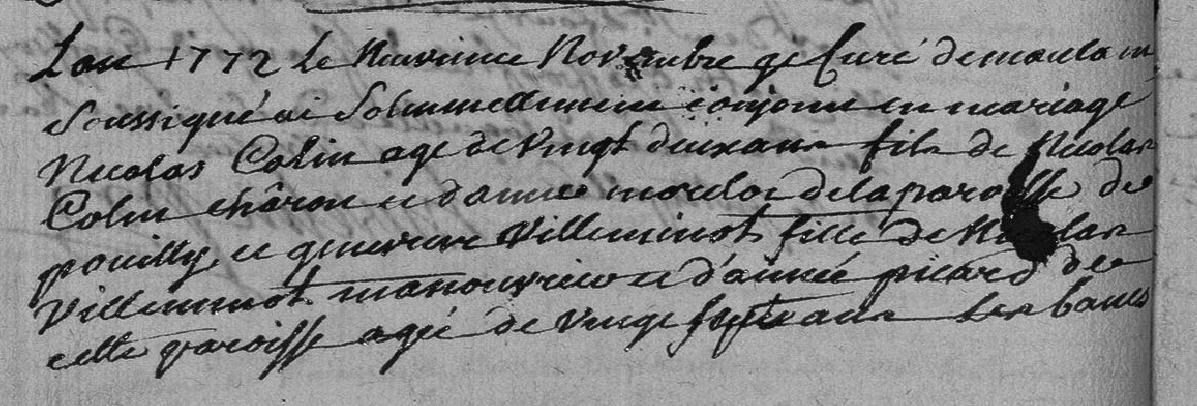 Lan 1772 le Neuvieme Novembre je Curé de
soussigné ai solemnellement conjoint en mariage
Nicolas Colin agé de vingt deux ans fils de Nicolas
Colin chåron et d'anne de la paroisse de
pouilly, et genevieve Villeminot fille de Nicolas
Villeminot manouvrier et d'année picard de
cette paroisse agée de vingt sept ans les bancs